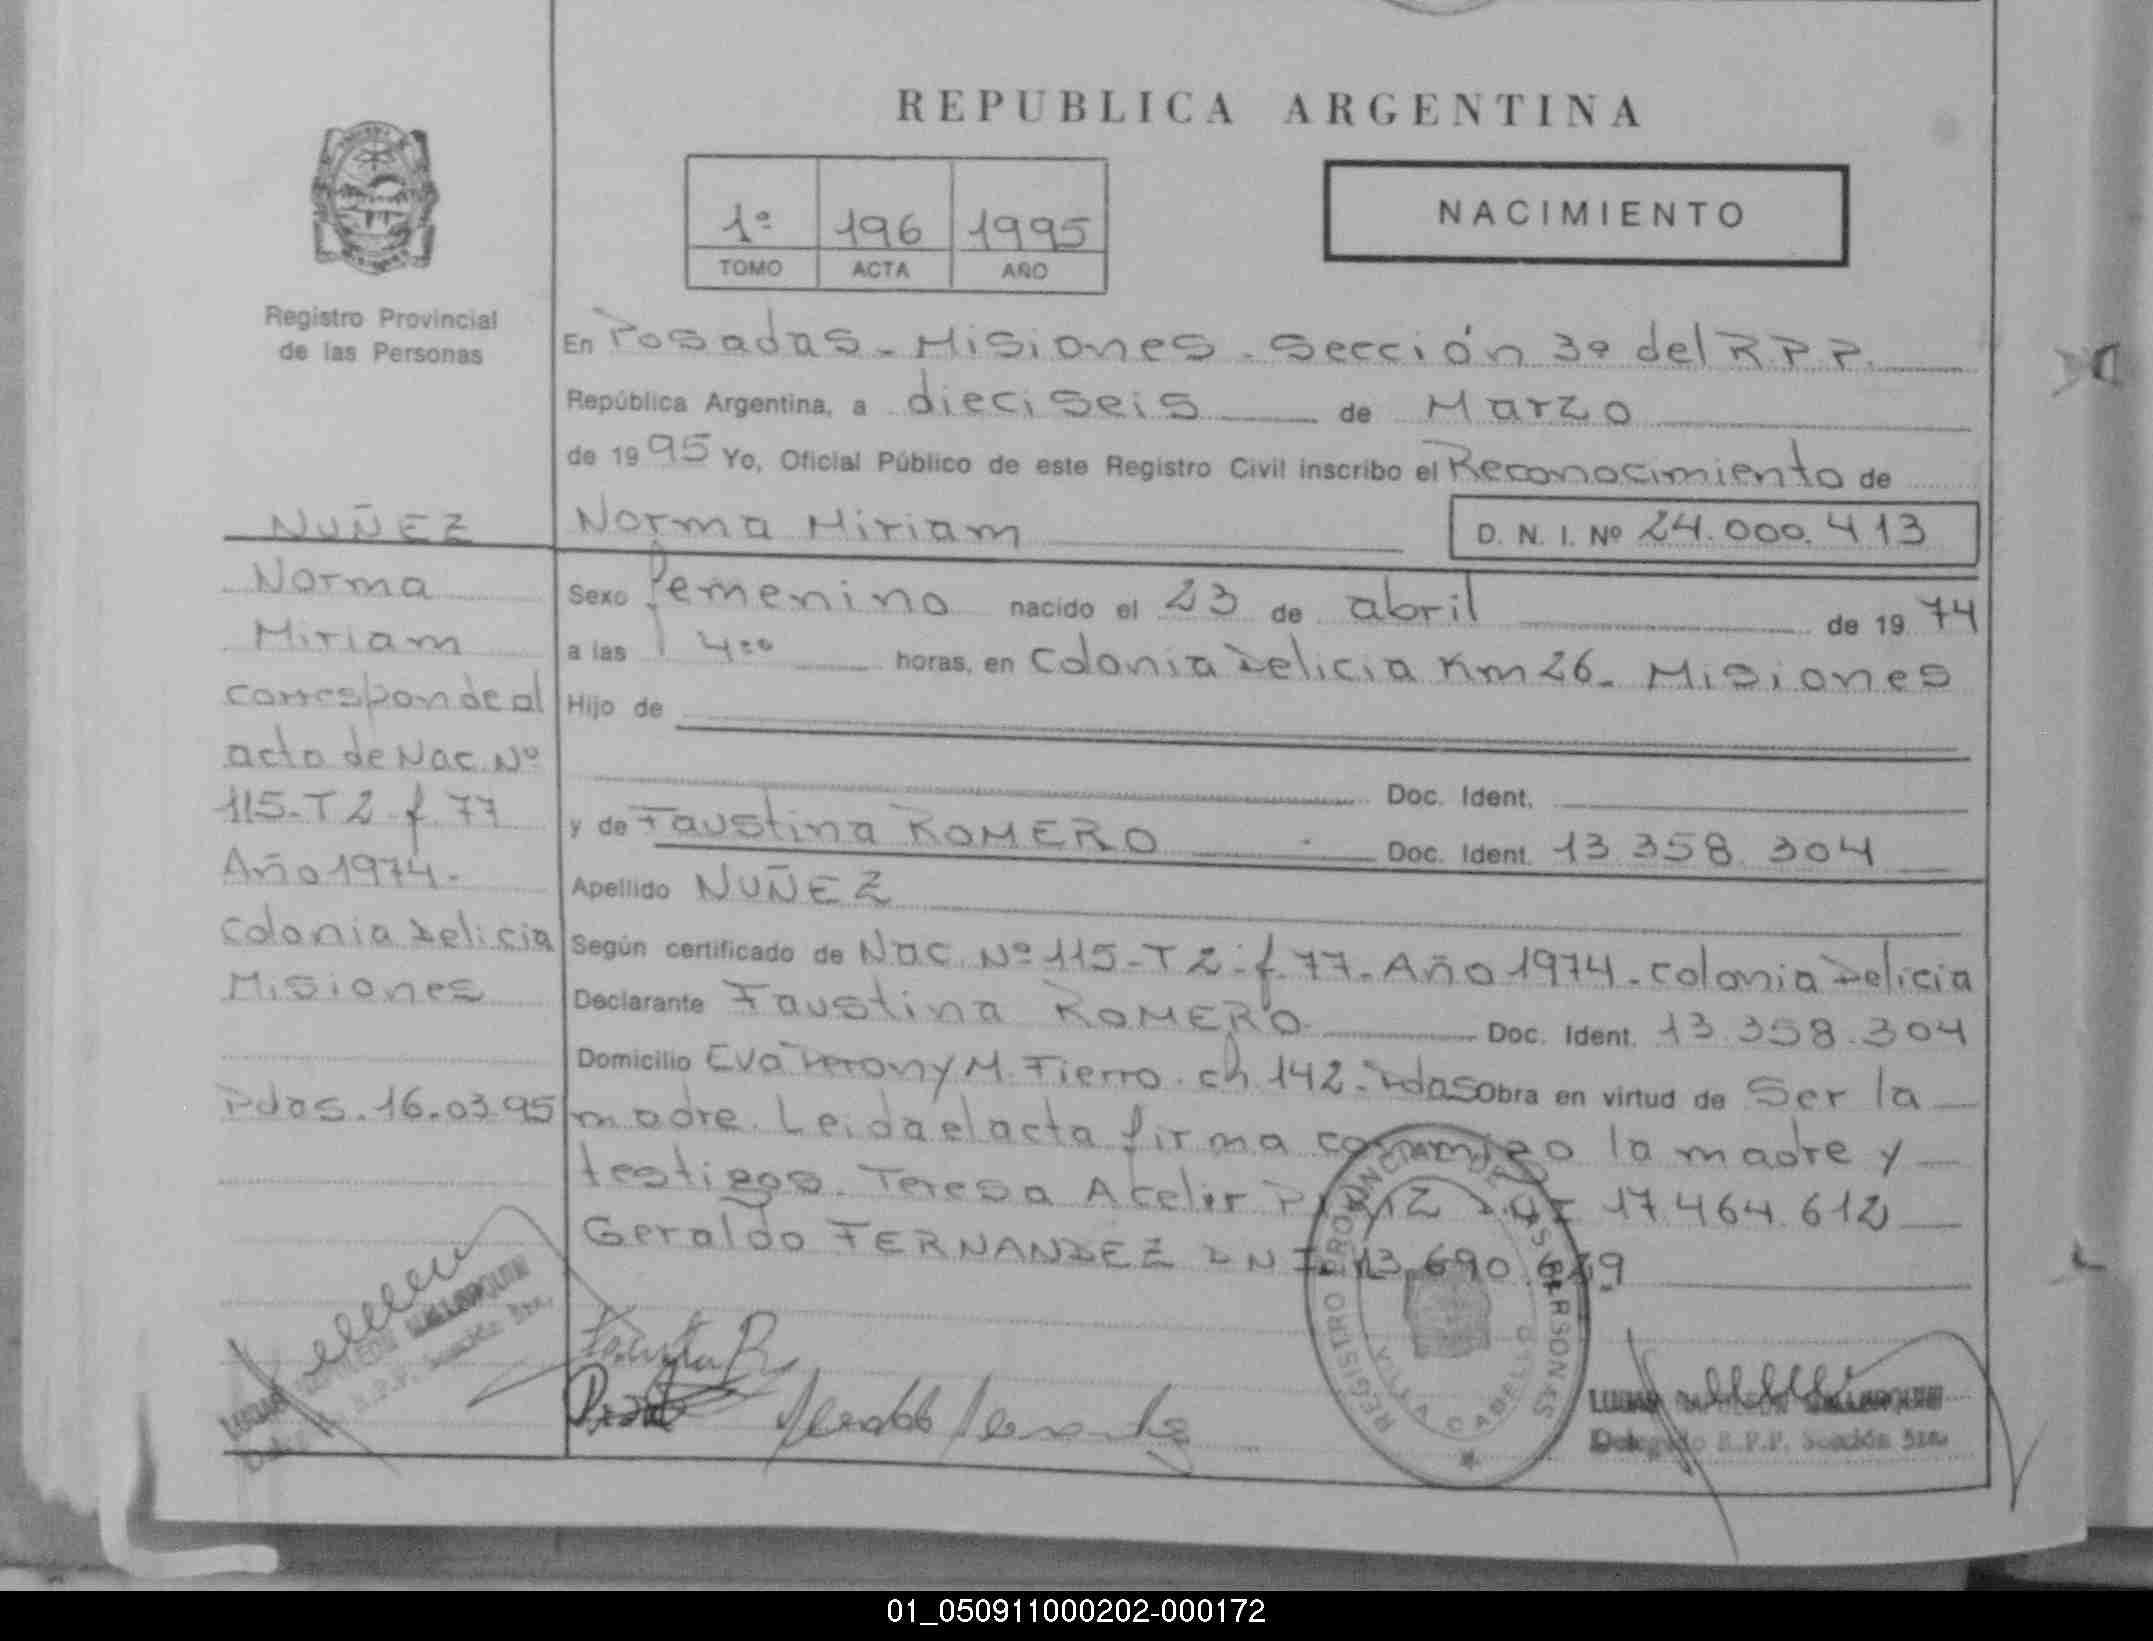 REPUBLICA ARGENTINA
1º 196 1995
TOMO ACTA AÑO
NACIMIENTO
Registro Provincial
de las Personas
NUÑEZ
Norma
Miriam
corresponde al
acta de Nac. Nº
115-T2-f.77
Año 1974.-
Colonia Delicia
Misiones
Pdas. 16.03.95
En Posadas - Misiones - Sección 3º del R.P.P.
República Argentina, a dieciseis de Marzo
de 1995 Yo, Oficial Público de este Registro Civil inscribo el Reconocimiento de
Norma Miriam D. N. I. Nº 24.000.413
Sexo femenino nacido el 23 de abril de 1974
a las 4:00 horas, en Colonia Delicia Km 26 - Misiones
Hijo de
Doc. Ident.
y de Faustina ROMERO Doc. Ident. 13.358.304
Apellido NUÑEZ
Según certificado de Nac. Nº 115-T2-f.77-Año 1974-Colonia Delicia
Declarante Faustina ROMERO Doc. Ident. 13.358.304
Domicilio Eva Peron y M. Fierro. ch. 142-Pdas Obra en virtud de Ser la
madre. Leida el acta firma conmigo la madre y
testigos. Teresa 17.464.612
Geraldo FERNANDEZ DNI. 13.690.
REGISTRO PROVINCIAL DE LAS PERSONAS
VILLA CABELLO
Delegado R.P.P. Sección
Delegado R.P.P. Sección
01_050911000202-000172